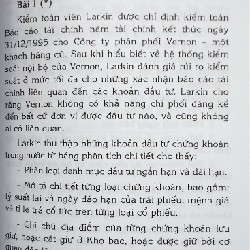 Bài 1 (*)
Kiểm toán viên Larkin được chỉ định kiểm toán
Báo cáo tài chính năm tài chính kết thúc ngày
31/12/1995 cho Công ty phân phối Vernon - một
khách hàng cũ. Sau khi hiểu biết về hệ thống kiểm
soát nội bộ của Vernon, Larkin đánh giá rủi ro kiểm
soát ở mức tối đa cho những xác nhận báo cáo tài
chính liên quan đến các khoản đầu tư. Larkin cho
rằng Vernon không có khả năng chi phối đáng kể
đến bất cứ đơn vị được đầu tư nào, và cũng không
ai có liên quan.
Larkin thu thập những khoản đầu tư chứng khoán
trung nước từ bảng phân tích chi tiết cho thấy:
- Phân loại danh mục đầu tư ngắn hạn và dài hạn.
- Mô tả chi tiết từng loại chứng khoán, bao gồm
lý suất lãi và ngày đáo hạn của trái phiếu, mệnh giá
và tỉ lệ trả cổ tức trên từng loại cổ phiếu.
- Ghi chú địa điểm của từng chứng khoán lưu
giữ, hoặc cất giữ ở Kho bạc, hoặc được giữ bởi cơ